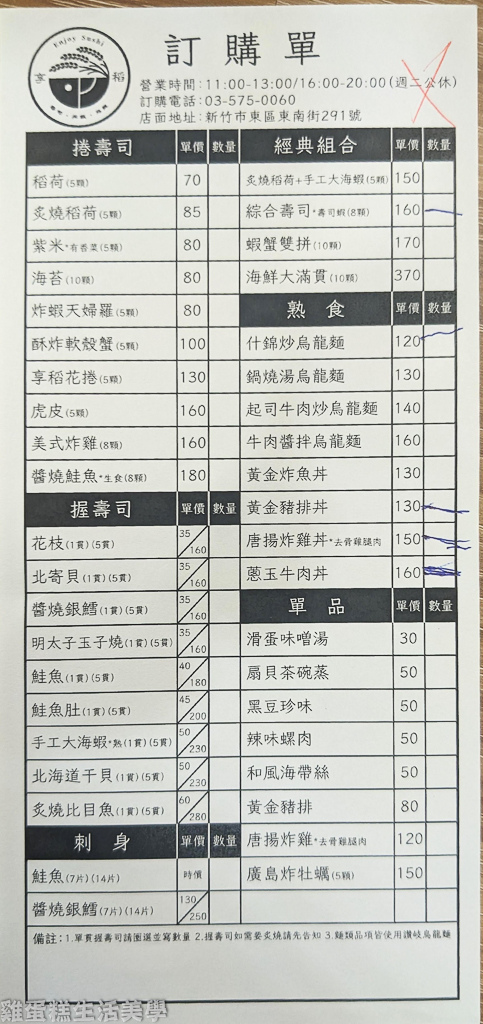 Enjoy Sushi
享 稻
訂購單
營業時間：11:00-13:00/16:00-20:00(週二公休)
訂購電話：03-575-0060
店面地址：新竹市東區東南街291號
捲壽司 單價 數量
稻荷(5顆) 70
炙燒稻荷(5顆) 85
紫米*有香菜(5顆) 80
海苔(10顆) 80
炸蝦天婦羅(5顆) 80
酥炸軟殼蟹(5顆) 100
享稻花捲(5顆) 130
虎皮(5顆) 160
美式炸雞(8顆) 160
醬燒鮭魚*生食(8顆) 180
握壽司 單價 數量
花枝(1貫)(5貫) 35/160
北寄貝(1貫)(5貫) 35/160
醬燒銀鱈(1貫)(5貫) 35/160
明太子玉子燒(1貫)(5貫) 35/160
鮭魚(1貫)(5貫) 40/180
鮭魚肚(1貫)(5貫) 45/200
手工大海蝦*熟(1貫)(5貫) 50/230
北海道干貝(1貫)(5貫) 50/230
炙燒比目魚(1貫)(5貫) 60/280
刺身 單價 數量
鮭魚(7片)(14片) 時價
醬燒銀鱈(7片)(14片) 130/250
經典組合 單價 數量
炙燒稻荷+手工大海蝦(5顆) 150
綜合壽司*壽司蝦(8顆) 160
蝦蟹雙拼(10顆) 170
海鮮大滿貫(10顆) 370
熟食 單價 數量
什錦炒烏龍麵 120
鍋燒湯烏龍麵 130
起司牛肉炒烏龍麵 140
牛肉醬拌烏龍麵 160
黃金炸魚丼 130
黃金豬排丼 130
唐揚炸雞丼*去骨雞腿肉 150
蔥玉牛肉丼 160
單品 單價 數量
滑蛋味噌湯 30
扇貝茶碗蒸 50
黑豆珍味 50
辣味螺肉 50
和風海帶絲 50
黃金豬排 80
唐揚炸雞*去骨雞腿肉 120
廣島炸牡蠣(5顆) 150
備註：1.單貫握壽司請圈選並寫數量 2.握壽司如需要炙燒請先告知 3.麵類品項皆使用讚岐烏龍麵
雞蛋糕生活美學